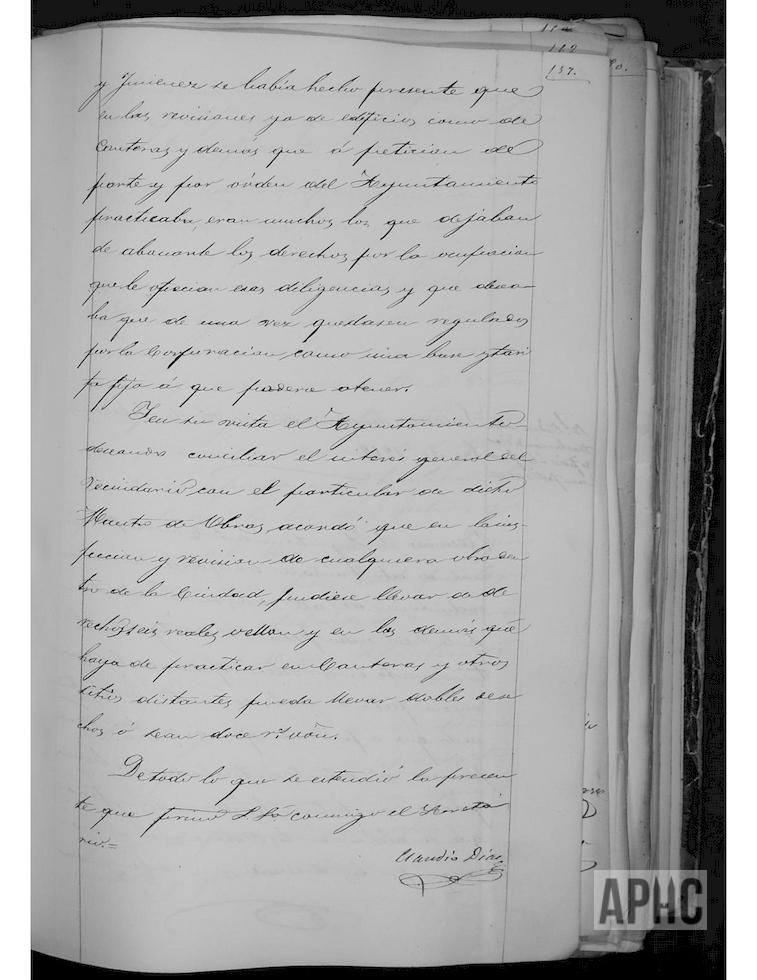 114
119
137.
y Jimenez se habia hecho presente que
en las revisiones ya de edificios como de
Canteras y demas que á peticion de
parte y por orden del Ayuntamiento
practicaba, eran muchos los que dejaban
de abonarle los derechos por la ocupacion
que le ofrecian esas diligencias, y que desea-
ba que de una vez quedasen regulados
por la Corporacion, como una base y tari
fa fija á que poderse atener.
Y en su vista el Ayuntamiento
deseando conciliar el interés general del
vecindario, con el particular de dicho
Maestro de Obras, acordó que en la ins-
peccion y revision de cualquiera obra den
tro de la Ciudad, pudiese llevar de de
rechos seis reales vellon y en las demás que
haya de practicar en Canteras y otros
sitios distantes pueda llevar dobles dere
chos ó sean doce r.s vón.
De todo lo que se estendió la presen
te que firmó S. Sa conmigo el Secreta
rio.=
Claudio Diaz
APHC